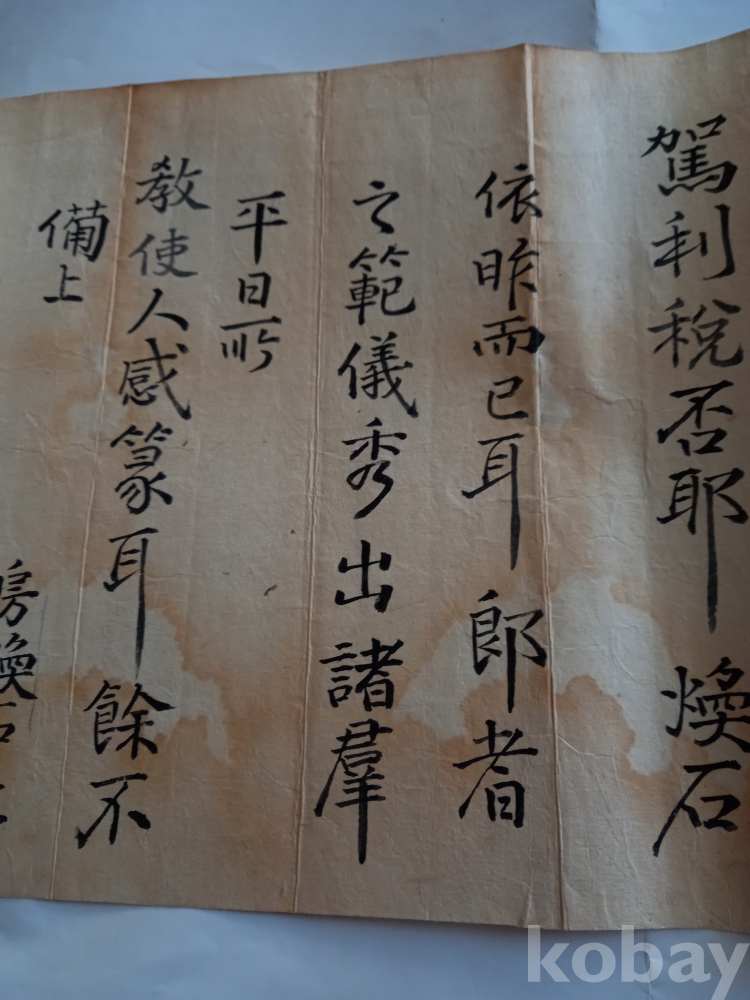 駕利稅否耶 煥石
依昨而已耳 郎者
之範儀秀出諸羣
平日所
敎使人感篆耳餘不
備上
房煥石
kobay